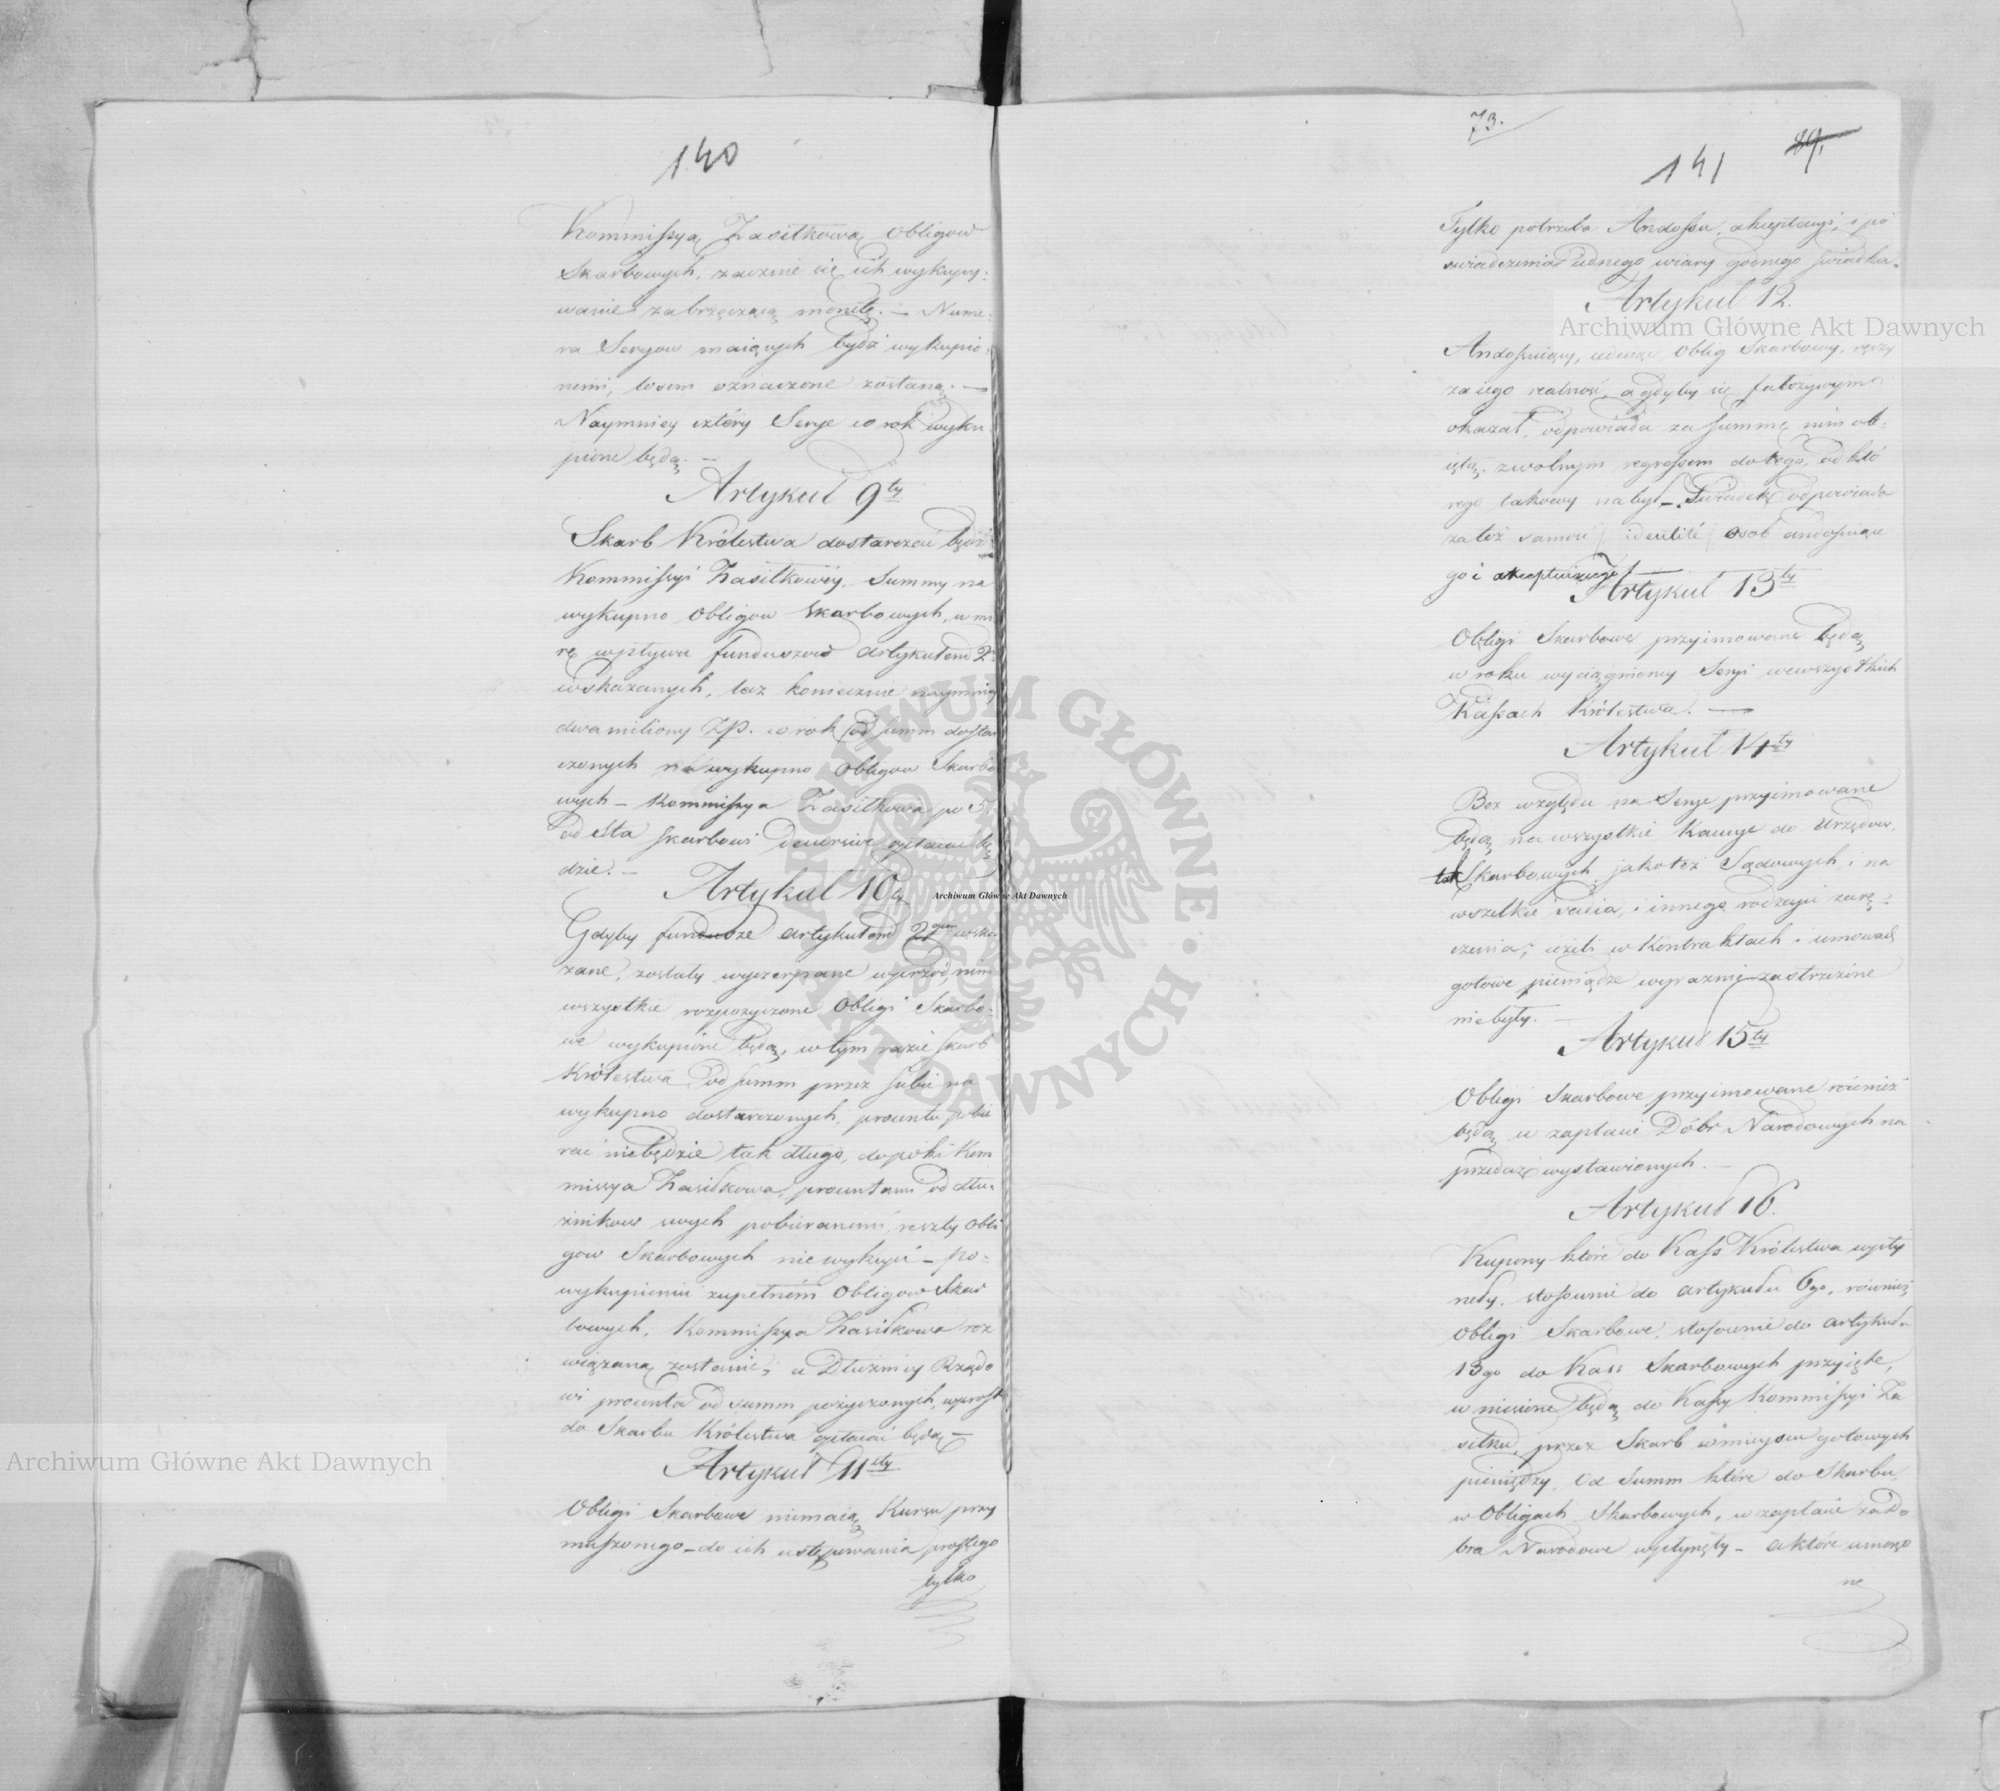 140
Kommissyą Zasiłkową Obligow
Skarbowych, zacznie się ich wykupy:
wanie za brzęczącą monetę. — Nume:
ra Seryow maiących bydź wykupio:
nemi, losem oznaczone zostaną. —
Naymniey cztéry Serye co rok wyku
pione będą. —
Artykuł 9ty
Skarb Królestwa dostarczać będzie
Kommissyi Zasiłkowéy Summy na
wykupno Obligow Skarbowych, w mia
rę wpływu funduszow artykułem 2m
wskazanych, lecz koniecznie naymniey
dwa miliony Zp. co rok od summ dostar
czonych na wykupno Obligow Skarbo
wych — Kommissya Zasiłkowa po 5
od sta Skarbowi opłacać bę
dzie. —
Artykuł 10ty
Gdyby fundusze artykułem 2gim wska
zane, zostały wyczerpane wprzód nim
wszystkie rozpożyczone Obligi Skarbo:
we wykupione będą, w tym razie Skarb
Królestwa od summ przez siebie na
wykupno dostarczonych, procentu pobie
rać niebędzie tak długo, dopóki Kom
missya Zasiłkowa, procentami od dłu:
żnikow swych pobieranemi, reszty Obli
gow Skarbowych nie wykupi — po:
wykupieniu zupełném Obligow Skar
bowych, Kommissya Zasiłkowa roz
wiązaną zostanie; a Dłużnicy Rządo
wi procenta od summ pożyczonych, wprost
do Skarbu Królestwa opłacać będą —
Artykuł 11sty
Obligi Skarbowe niemaią Kursu przy
muszonego — do ich ustępowania prostego
tylko
73.
141
89.
Tylko potrzeba Andossu, akceptacyi, i po
świadczenia iednego wiary godnego świadka.
Artykuł 12.
Andossuiący, Oblig Skarbowy, ręczy
za iego realność, a gdyby się fałszywym
okazał, odpowiada za summę nim ob:
iętą, z wolnym regressem do tego, od któ
rego takowy nabył —. Świadek odpowiada
za toż samość / identité / osob andossuiące
go i akceptuiącego
Artykuł 13ty
Obligi Skarbowe przyimowane będą
w roku wyciągnioney Seryi wewszystkich
Kassach Królestwa. —
Artykuł 14ty
Bez względu na Serye przyimowane
będą na wszystkie Kaucye do Urzędow,
tak Skarbowych jakoteż Sądowych, i na
wszelkie vadia, i innego rodzaju zarę:
czenia, ieżeli w Kontraktach i umowach
gotowe pieniądze wyraźnie zastrzeżone
niebyły. —
Artykuł 15ty
Obligi Skarbowe przyimowane również
będą w zapłacie Dóbr Narodowych na
przedaż wystawionych. —
Artykuł 16.
Kupony które do Kass Królestwa wpły
nęły, stosownie do artykułu 6go, również
Obligi Skarbowe, stosownie do artykułu
13go do Kass Skarbowych przyięte,
wniesione będą do Kassy Kommissyi Za
siłku, przez Skarb w mieyscu gotowych
pieniędzy. Od Summ które do Skarbu,
w Obligach Skarbowych, w zapłacie za Do
bra Narodowe wpłynęły — a które umorzo
ne
Archiwum Główne Akt Dawnych
Archiwum Główne Akt Dawnych
Archiwum Główne Akt Dawnych
ARCHIWUM GŁÓWNE AKT DAWNYCH